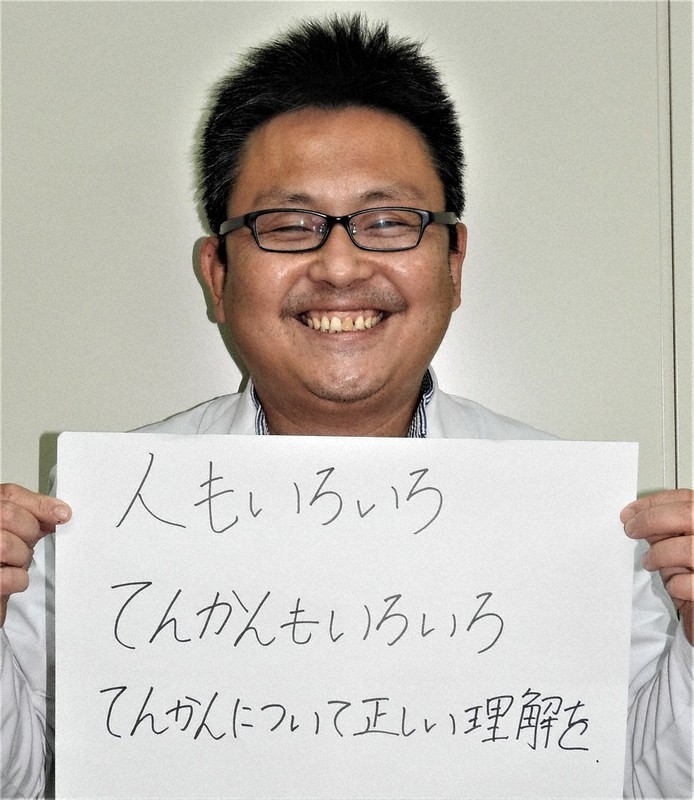 人もいろいろ
てんかんもいろいろ
てんかんについて正しい理解を.